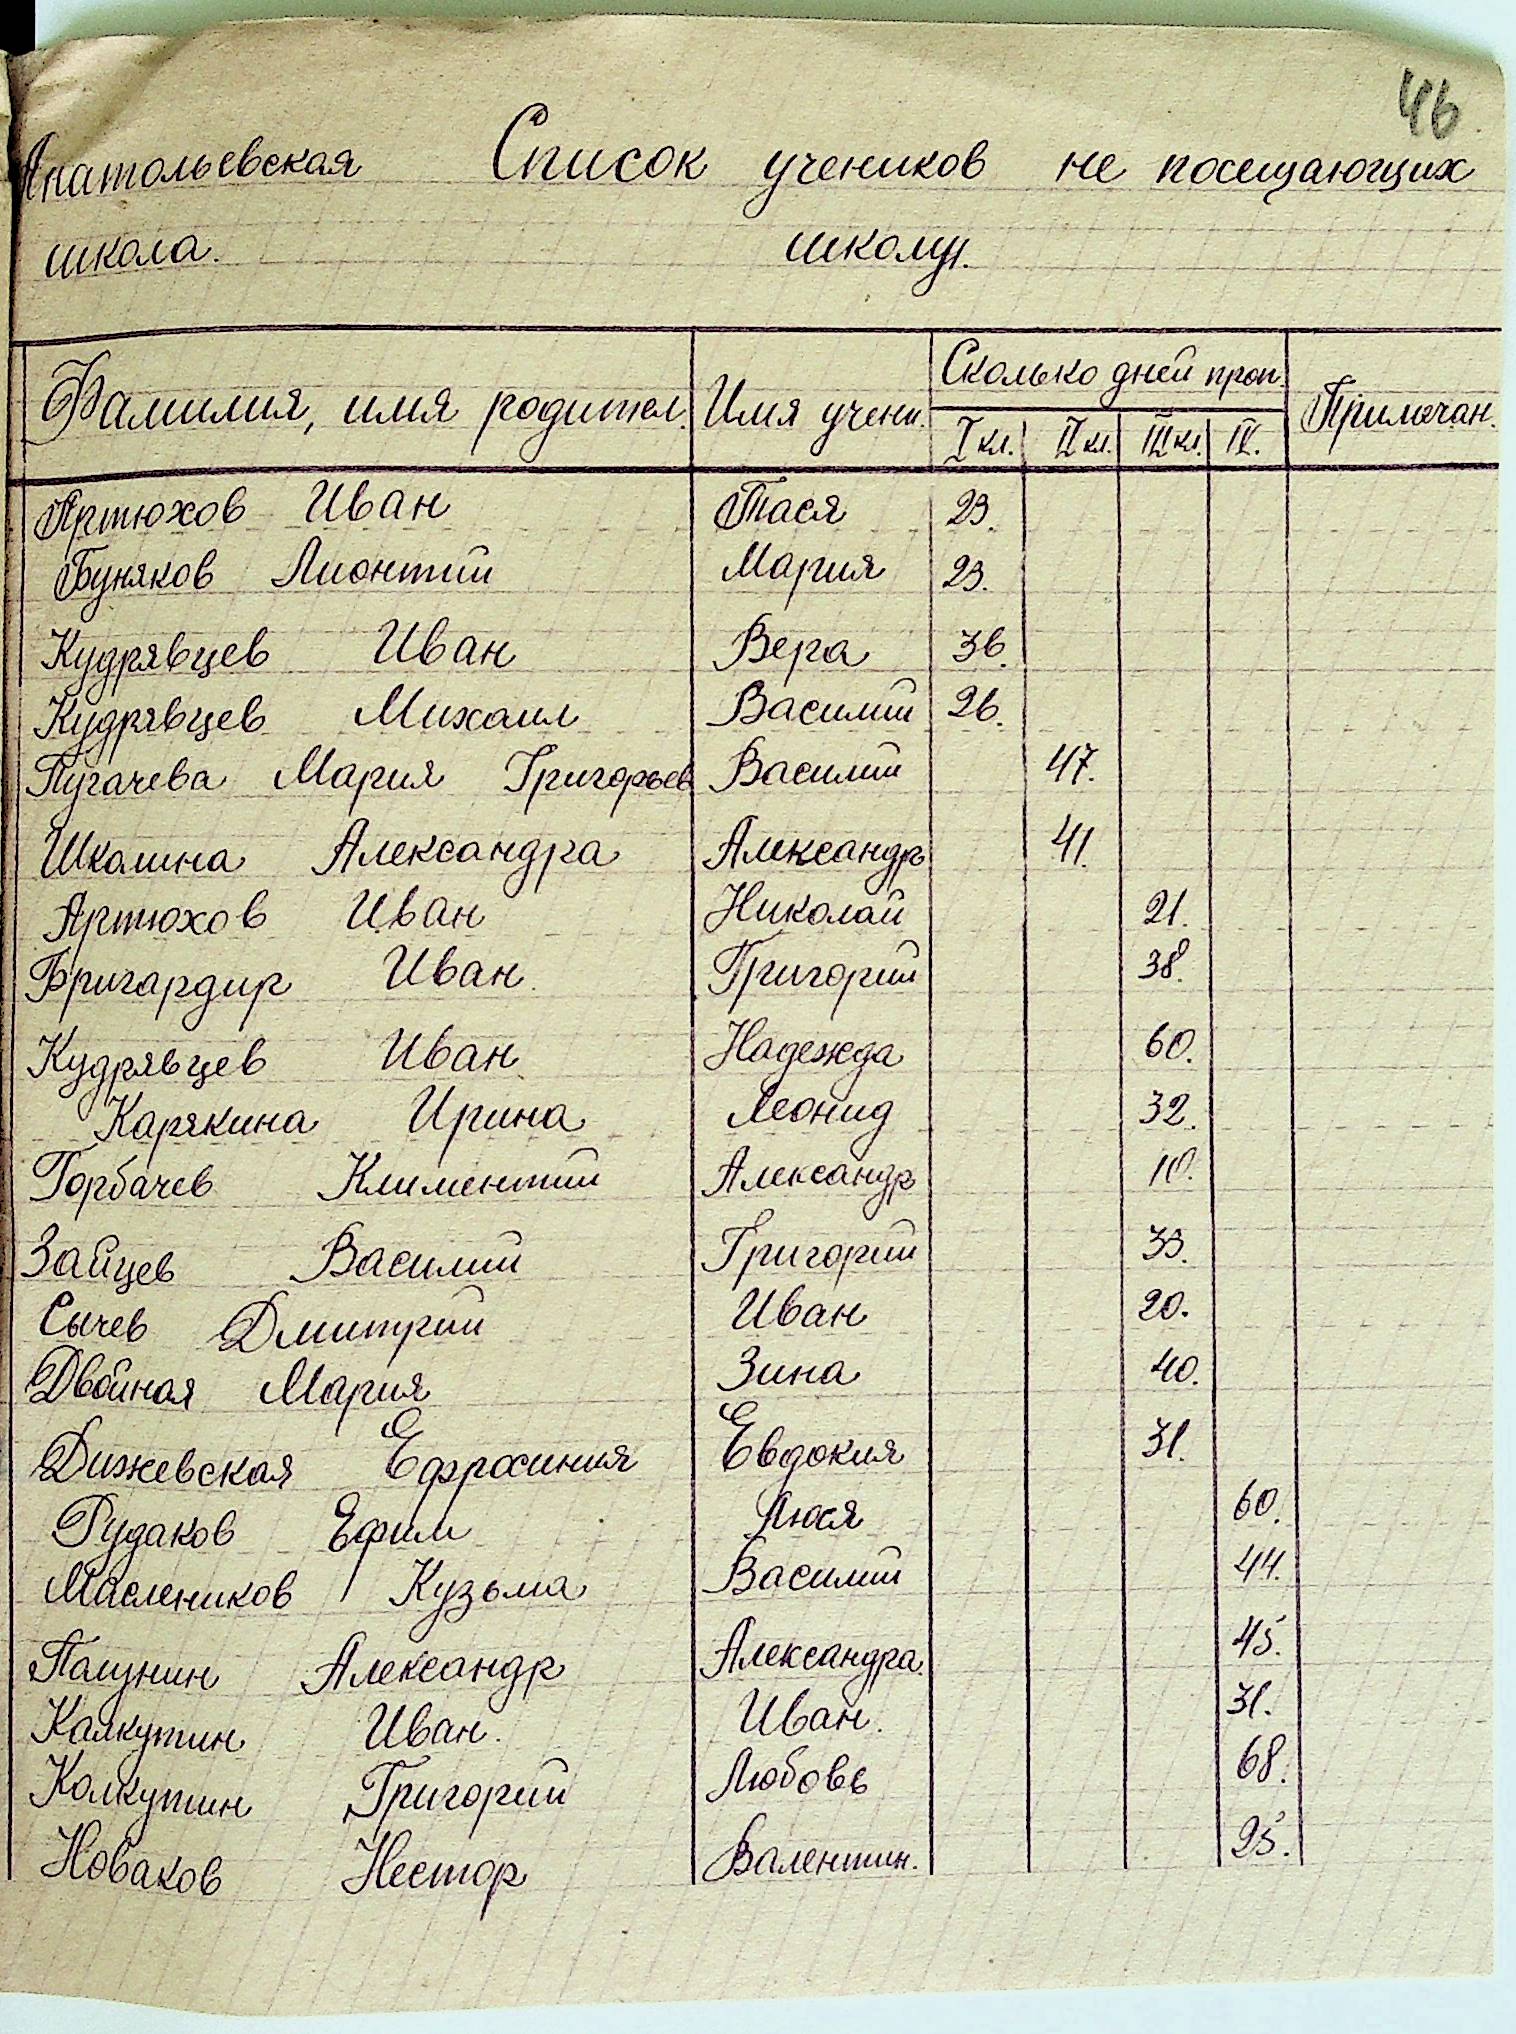 46
Анатольевская Список учеников не посещающих
школа. школу.
Фамилия, имя родител. Имя учени. Сколько дней проп. Примечан.
I кл. II кл. III кл. IV.
Артюхов Иван Тася 23.
Буняков Лионтий Мария 23.
Кудрявцев Иван Вера 36.
Кудрявцев Михаил Василий 26.
Пугачева Мария Григорьев Василий 47.
Шкалина Александра Александр 41.
Артюхов Иван Николай 21.
Бригардир Иван. Григорий 38.
Кудрявцев Иван Надежда 60.
Карякина Ирина Леонид 32.
Горбачев Климентий Александр 10.
Зайцев Василий Григорий 33.
Сычев Дмитрий Иван 20.
Двойная Мария Зина 40.
Дижевская Ефросиния Евдокия 31.
Рудаков Ефим Люся 60.
Маслеников Кузьма Василий 44.
Палунин Александр Александра. 45.
Калкутин Иван. Иван. 31.
Колкутин Григорий Любовь 68.
Новаков Нестор Валентин. 25.